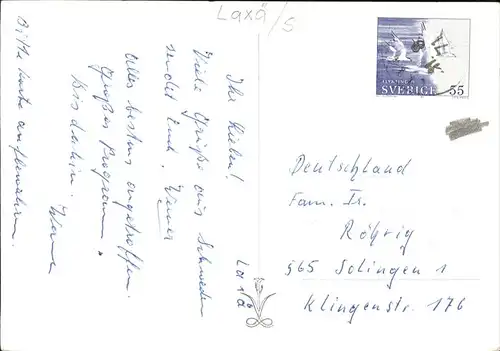 Laxå/S
Ihr Lieben!
Viele Grüße aus Schweden
sendet Euch Werner
Alles bestens angetroffen.
Großes Programm.
Bis dahin.
Bitte Karte aufbewahren.
Laxå
SVERIGE 55
Deutschland
Fam. Is.
Röhrig
565 Solingen 1
Klingenstr. 176